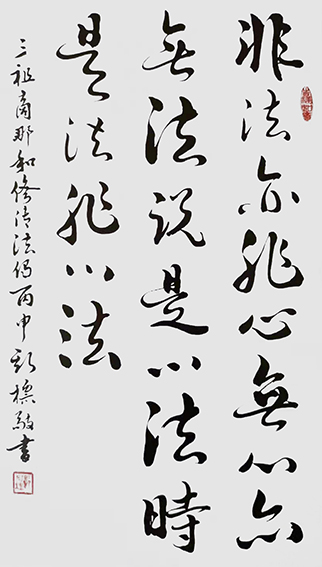 非法亦非心無心亦
無法說是心法時
是法非心法
三祖商那和修傳法偈丙申標敬書